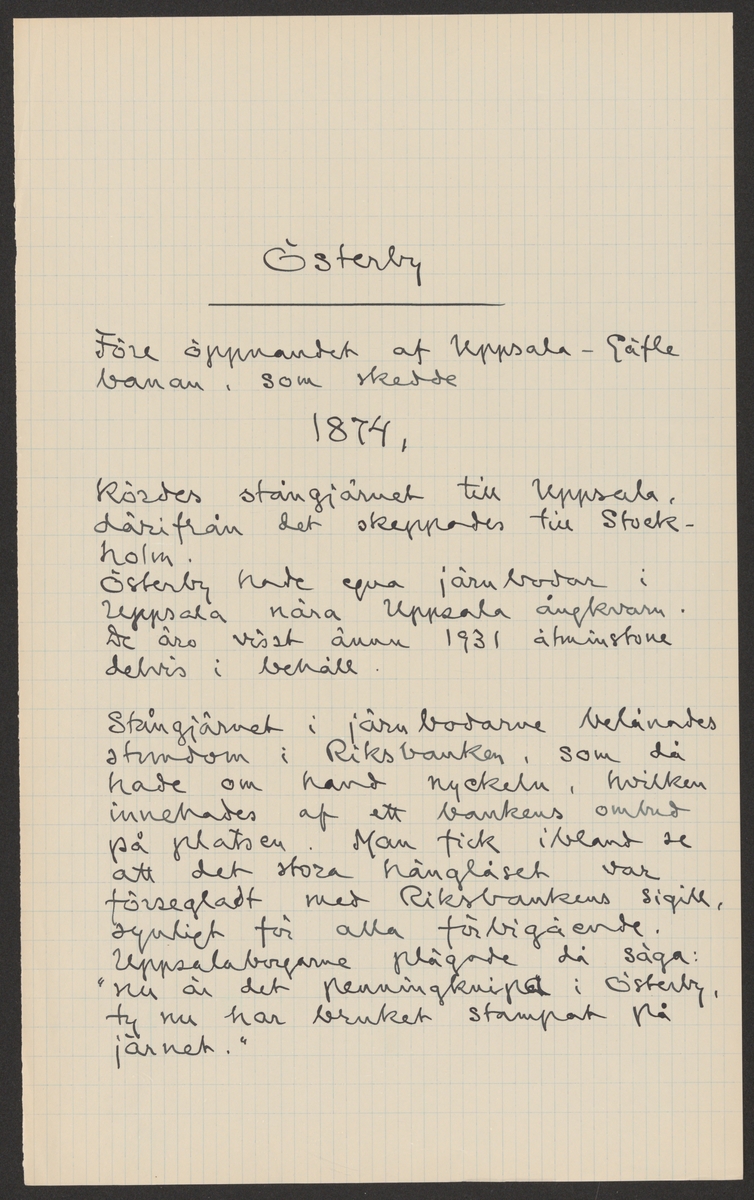 Österby
Före öppnandet af Uppsala - Gäfle
banan, som skedde
1874,
Kördes stångjärnet till Uppsala,
därifrån det skeppades till Stock-
holm.
Österby hade egna järnbodar i
Uppsala nära Uppsala ångkvarn.
De äro visst ännu 1931 åtminstone
delvis i behåll.
Stångjärnet i järnbodarne belånades
stundom i Riksbanken, som då
hade om hand nyckeln, hvilken
innehades af ett bankens ombud
på platsen. Man fick ibland se
att det stora hänglåset var
försegladt med Riksbankens sigill,
synligt för alla förbigående.
Uppsalaborgarne plägade då säga:
"nu är det penningknipa i Österby,
ty nu har bruket stampat på
järnet."